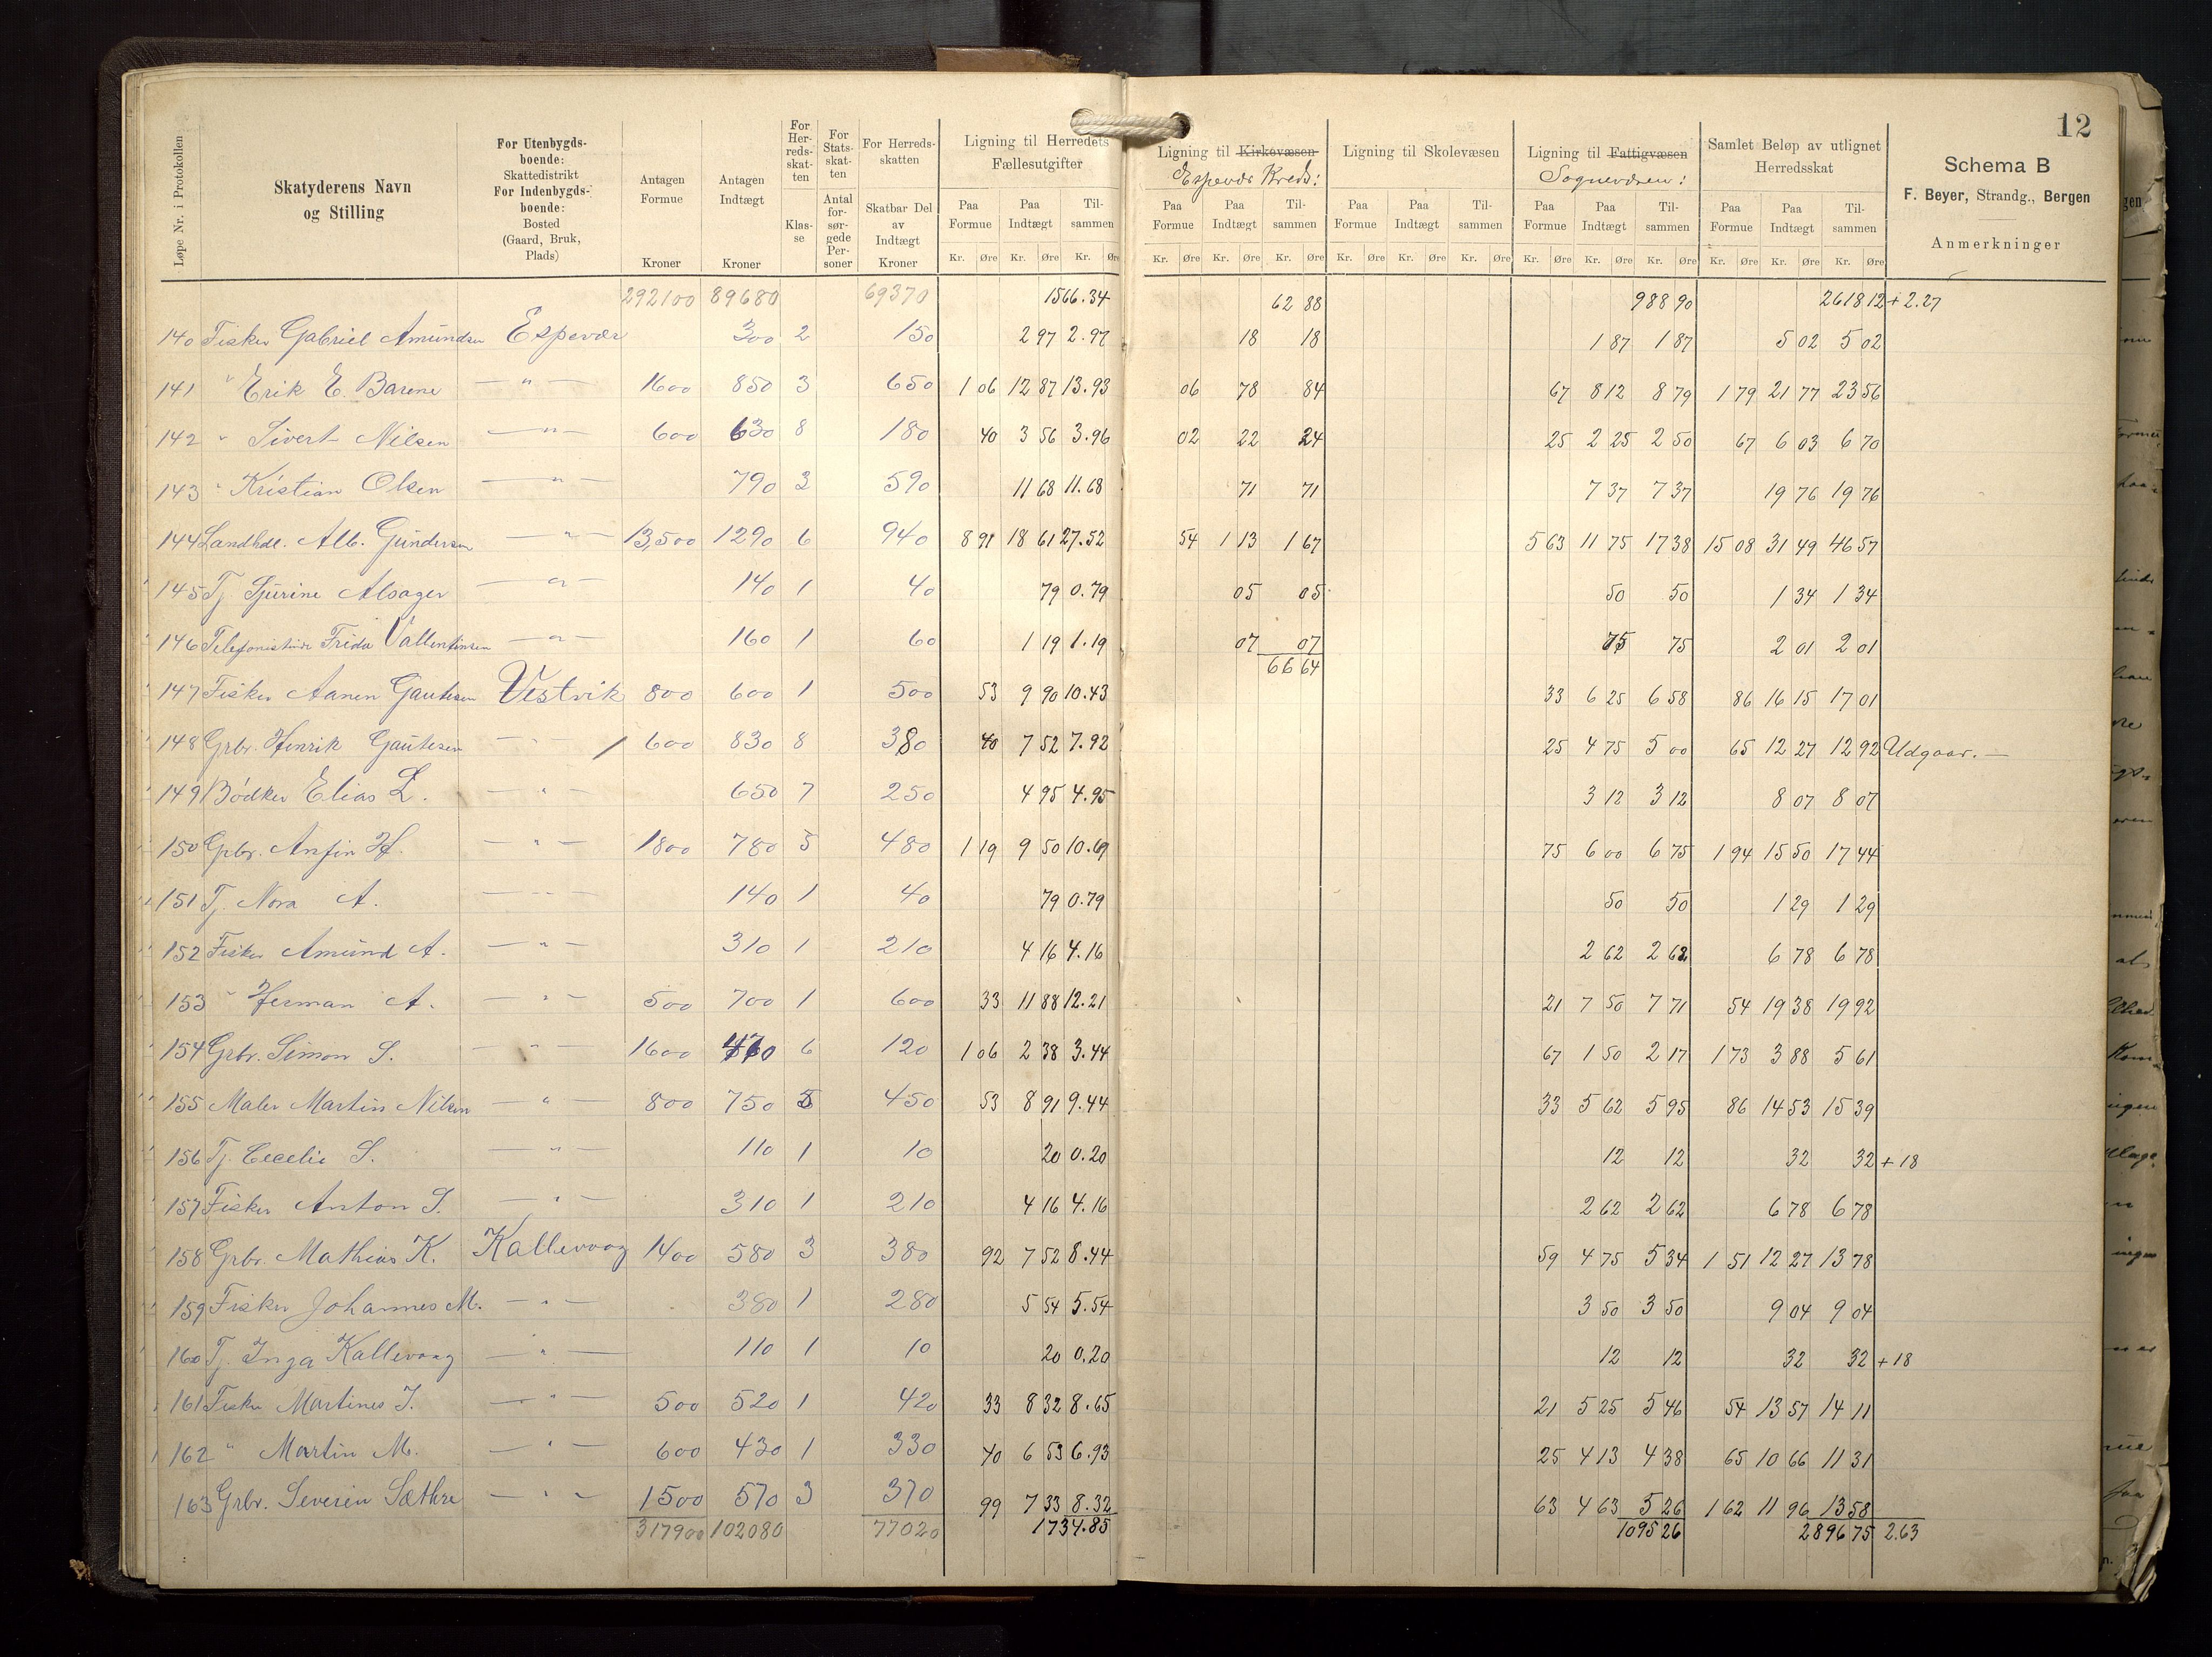 12
Løpe Nr. i Protokollen
Skatyderens Navn og Stilling
For Utenbygds-boende: Skattedistrikt For Indenbygds-boende: Bosted (Gaard, Bruk, Plads)
Antagen Formue Kroner
Antagen Indtægt Kroner
For Her-reds-skat-ten Klas-se
For Stats-skat-ten Antal for-sør-gede Per-soner
For Herreds-skatten Skatbar Del av Indtægt Kroner
Ligning til Herredets Fællesutgifter
Paa Formue Paa Indtægt Til-sammen
Kr. Øre Kr. Øre Kr. Øre
Ligning til Kirkevæsen Espevær Kreds:
Paa Formue Paa Indtægt Til-sammen
Kr. Øre Kr. Øre Kr. Øre
Ligning til Skolevæsen
Paa Formue Paa Indtægt Til-sammen
Kr. Øre Kr. Øre Kr. Øre
Ligning til Fattigvæsen Sognevæsen:
Paa Formue Paa Indtægt Til-sammen
Kr. Øre Kr. Øre Kr. Øre
Samlet Beløp av utlignet Herredsskat
Paa Formue Paa Indtægt Til-sammen
Kr. Øre Kr. Øre Kr. Øre
Schema B
F. Beyer, Strandg., Bergen
Anmerkninger
292100 89680 69370 1566.34 62 88 988 90 2618 12 + 2.27
140 Fisker Gabriel Amundsen Espevær 300 2 150 2 97 2.97 18 18 1 87 1 87 5 02 5 02
141 " Erik E. Barene — " — 1600 850 3 650 1 06 12 87 13.93 06 78 84 67 8 12 8 79 1 79 21 77 23 56
142 " Sivert Nilsen — " — 600 630 8 180 40 3 56 3.96 02 22 24 25 2 25 2 50 67 6 03 6 70
143 " Kristian Olsen — " — 790 3 590 11 68 11.68 71 71 7 37 7 37 19 76 19 76
144 Landhdl. Alb. Gundersen — " — 13,500 1290 6 940 8 91 18 61 27.52 54 1 13 1 67 5 63 11 75 17 38 15 08 31 49 46 57
145 Tj. Sjurine Alsager — " — 140 1 40 79 0.79 05 05 50 50 1 34 1 34
146 Telefonistinde Frida Vallentinsen — " — 160 1 60 1 19 1.19 07 07 75 75 2 01 2 01
66 64
147 Fisker Aanen Gautesen Vestvik 800 600 1 500 53 9 90 10.43 33 6 25 6 58 86 16 15 17 01
148 Grbr. Henrik Gautesen — " — 600 830 8 380 40 7 52 7.92 25 4 75 5 00 65 12 27 12 92 Udgaar. —
149 Bødker Elias L. — " — 650 7 250 4 95 4.95 3 12 3 12 8 07 8 07
150 Grbr. Anfin H. — " — 1800 780 5 480 1 19 9 50 10.69 75 6 00 6 75 1 94 15 50 17 44
151 Tj. Nora A. — " — 140 1 40 79 0.79 50 50 1 29 1 29
152 Fisker Amund A. — " — 310 1 210 4 16 4.16 2 62 2 62 6 78 6 78
153 " Herman A. — " — 500 700 1 600 33 11 88 12.21 21 7 50 7 71 54 19 38 19 92
154 Grbr. Simon S. — " — 1600 470 6 120 1 06 2 38 3.44 67 1 50 2 17 1 73 3 88 5 61
155 Maler Martin Nilsen — " — 800 750 5 450 53 8 91 9.44 33 5 62 5 95 86 14 53 15 39
156 Tj. Cecelie S. — " — 110 1 10 20 0.20 12 12 32 32 + 18
157 Fisker Anton S. — " — 310 1 210 4 16 4.16 2 62 2 62 6 78 6 78
158 Grbr. Mathias K. Kallevaag 1400 580 3 380 92 7 52 8.44 59 4 75 5 34 1 51 12 27 13 78
159 Fisker Johannes M. — " — 380 1 280 5 54 5.54 3 50 3 50 9 04 9 04
160 Tj. Inga Kallevaag — " — 110 1 10 20 0.20 12 12 32 32 + 18
161 Fisker Martines J. — " — 500 520 1 420 33 8 32 8.65 21 5 25 5 46 54 13 57 14 11
162 " Martin M. — " — 600 430 1 330 40 6 53 6.93 25 4 13 4 38 65 10 66 11 31
163 Grbr. Severin Sæthre — " — 1500 570 3 370 99 7 33 8.32 63 4 63 5 26 1 62 11 96 13 58
317900 102080 77020 1734.85 1095 26 2896 75 2.63